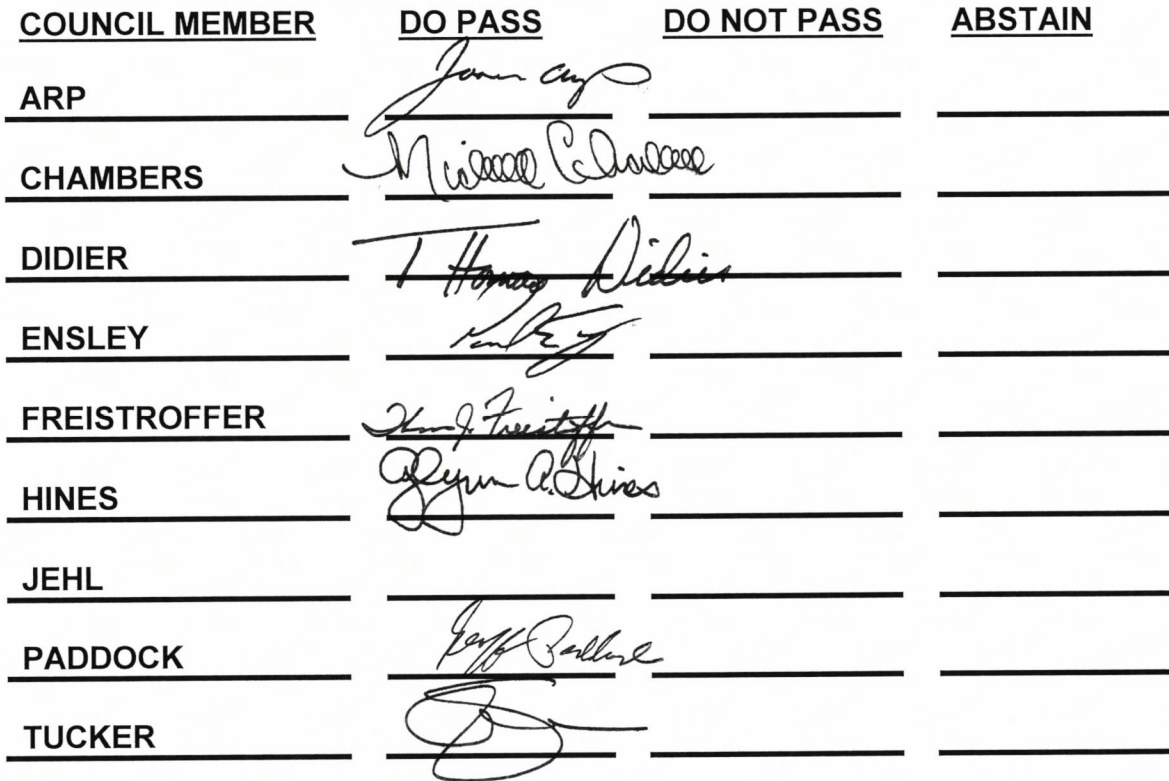 COUNCIL MEMBER DO PASS DO NOT PASS ABSTAIN
ARP
CHAMBERS
DIDIER T Homas Didier
ENSLEY
FREISTROFFER J. Freistroffer
HINES Glynn A. Hines
JEHL
PADDOCK Geoff Paddock
TUCKER